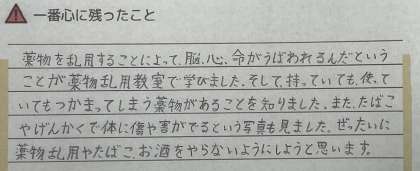 一番心に残ったこと
薬物を乱用することによって、脳、心、命がうばわれるんだという
ことが薬物乱用教室で学びました。そして、持っていても、使って
いてもつかまってしまう薬物があることを知りました。また、たばこ
やげんかくで体に傷や害がでるという写真も見ました。ぜったいに
薬物乱用やたばこ、お酒をやらないようにしようと思います。